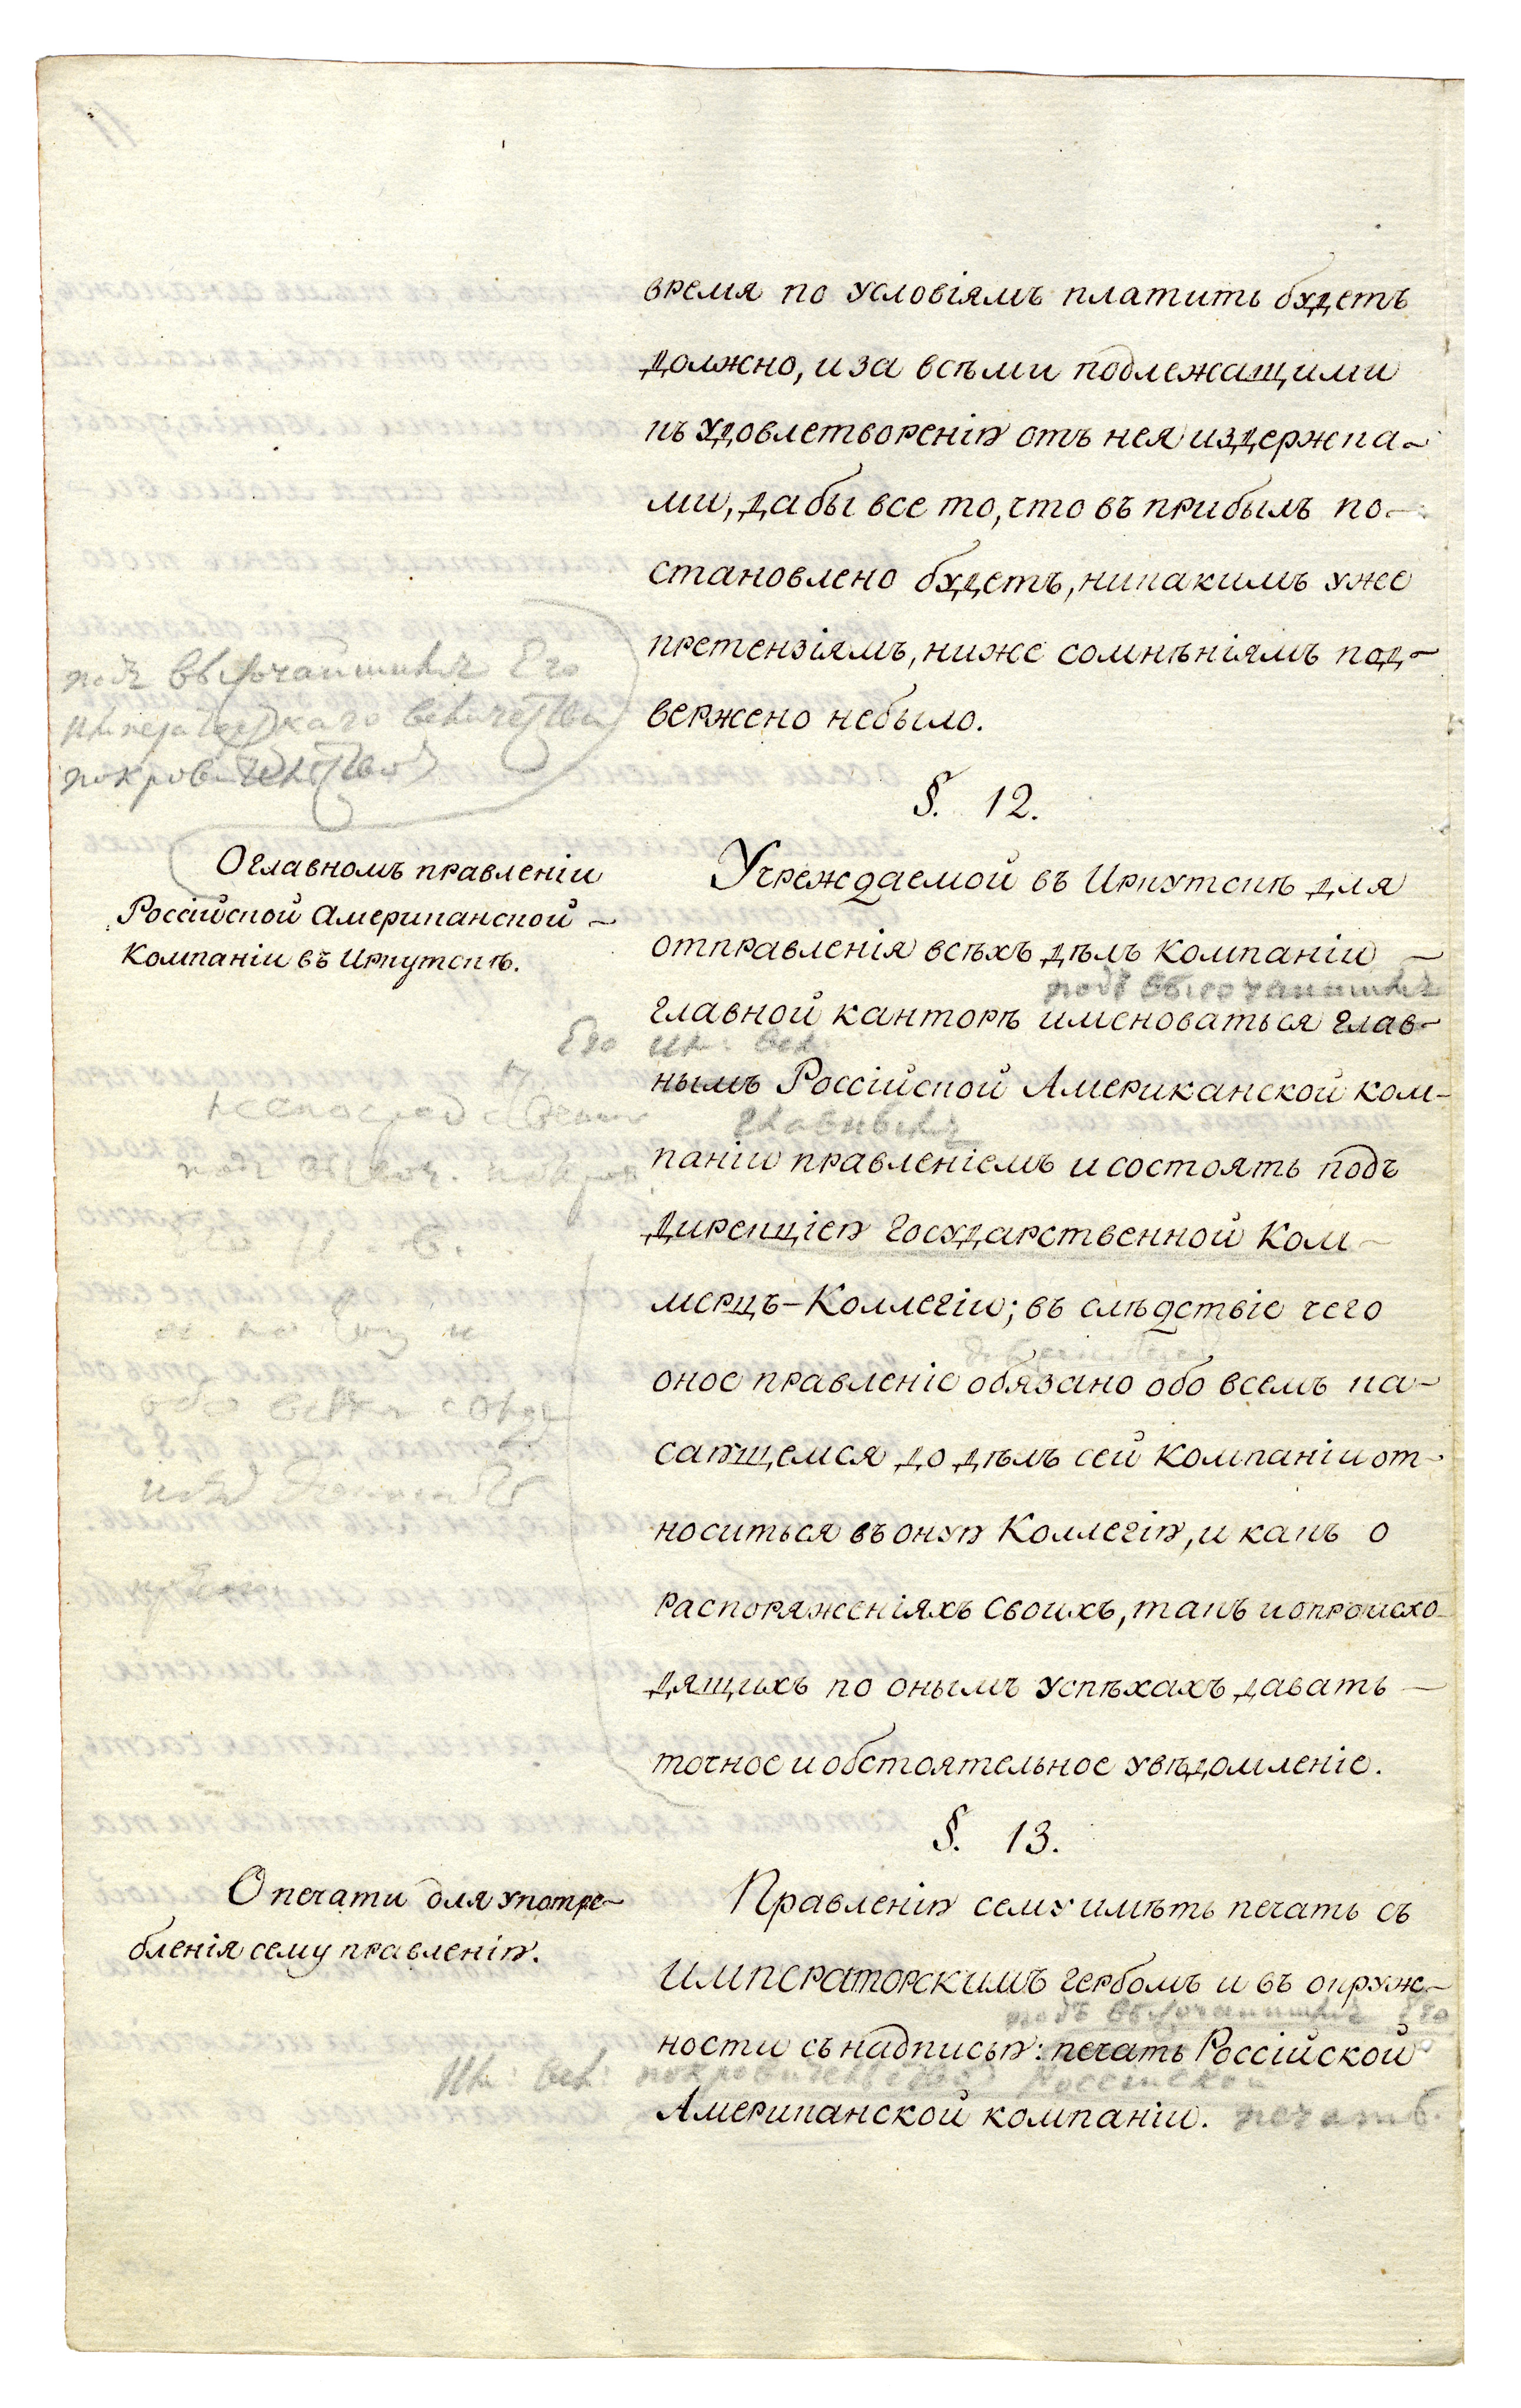 время по условіямъ платить будетъ
должно, и за всѣми подлежащими
къ удовлетворенію отъ нея издержка-
ми, дабы все то, что въ прибыль по-
становлено будетъ, никакимъ уже
претензіямъ, ниже сомнѣніямъ под-
вержено небыло.
подъ высочайшимъ Его
Императорскаго величества
покровительствомъ
§. 12.
О главномъ правленіи
Россійской Американской
Компаніи въ Иркутскѣ.
Учреждаемой въ Иркутскѣ для
отправленія всѣхъ дѣлъ компаніи
подъ высочайшимъ
главной канторѣ именоваться глав-
Его Им: вел:
нымъ Россійской Американской ком-
главнымъ
паніи правленіемъ и состоять подъ
дирекціею Государственной Ком-
мерцъ-Коллегіи; въ слѣдствіе чего
оное правленіе обязано обо всемъ ка-
сающемся до дѣлъ сей компаніи от-
носиться въ оную Коллегію, и какъ о
распоряженіяхъ своихъ, такъ и о происхо-
дящихъ по онымъ успѣхахъ давать
точное и обстоятельное увѣдомленіе.
непосредственно
подъ высоч. покров
обо всемъ
§. 13.
О печати для употре-
бленія сему правленію.
Правленію сему имѣть печать съ
ИМПЕРАТОРСКИМЪ гербомъ и въ окруж-
подъ высочайшимъ Его
ности съ надписью: печать Россійской
Им: вел: покровительствомъ Россійской
Американской компаніи. печать.